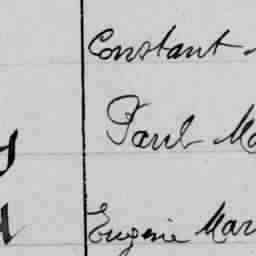 Constant
Paul Ma
Eugenie Mar